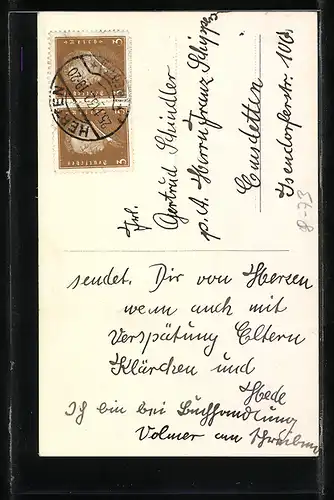 Frl.
Gertrud Schindler
p. A. Herrn Franz Schipper
Emsdetten
Isendorferstr. 106
8-73
HERTEN
3
Deutsches
3
Deutsches
sendet. Dir von Herzen
wenn auch mit
Verspätung Eltern
Klärchen und
Hede
Ich bin bei Buchhandlung
Volmer am schreiben